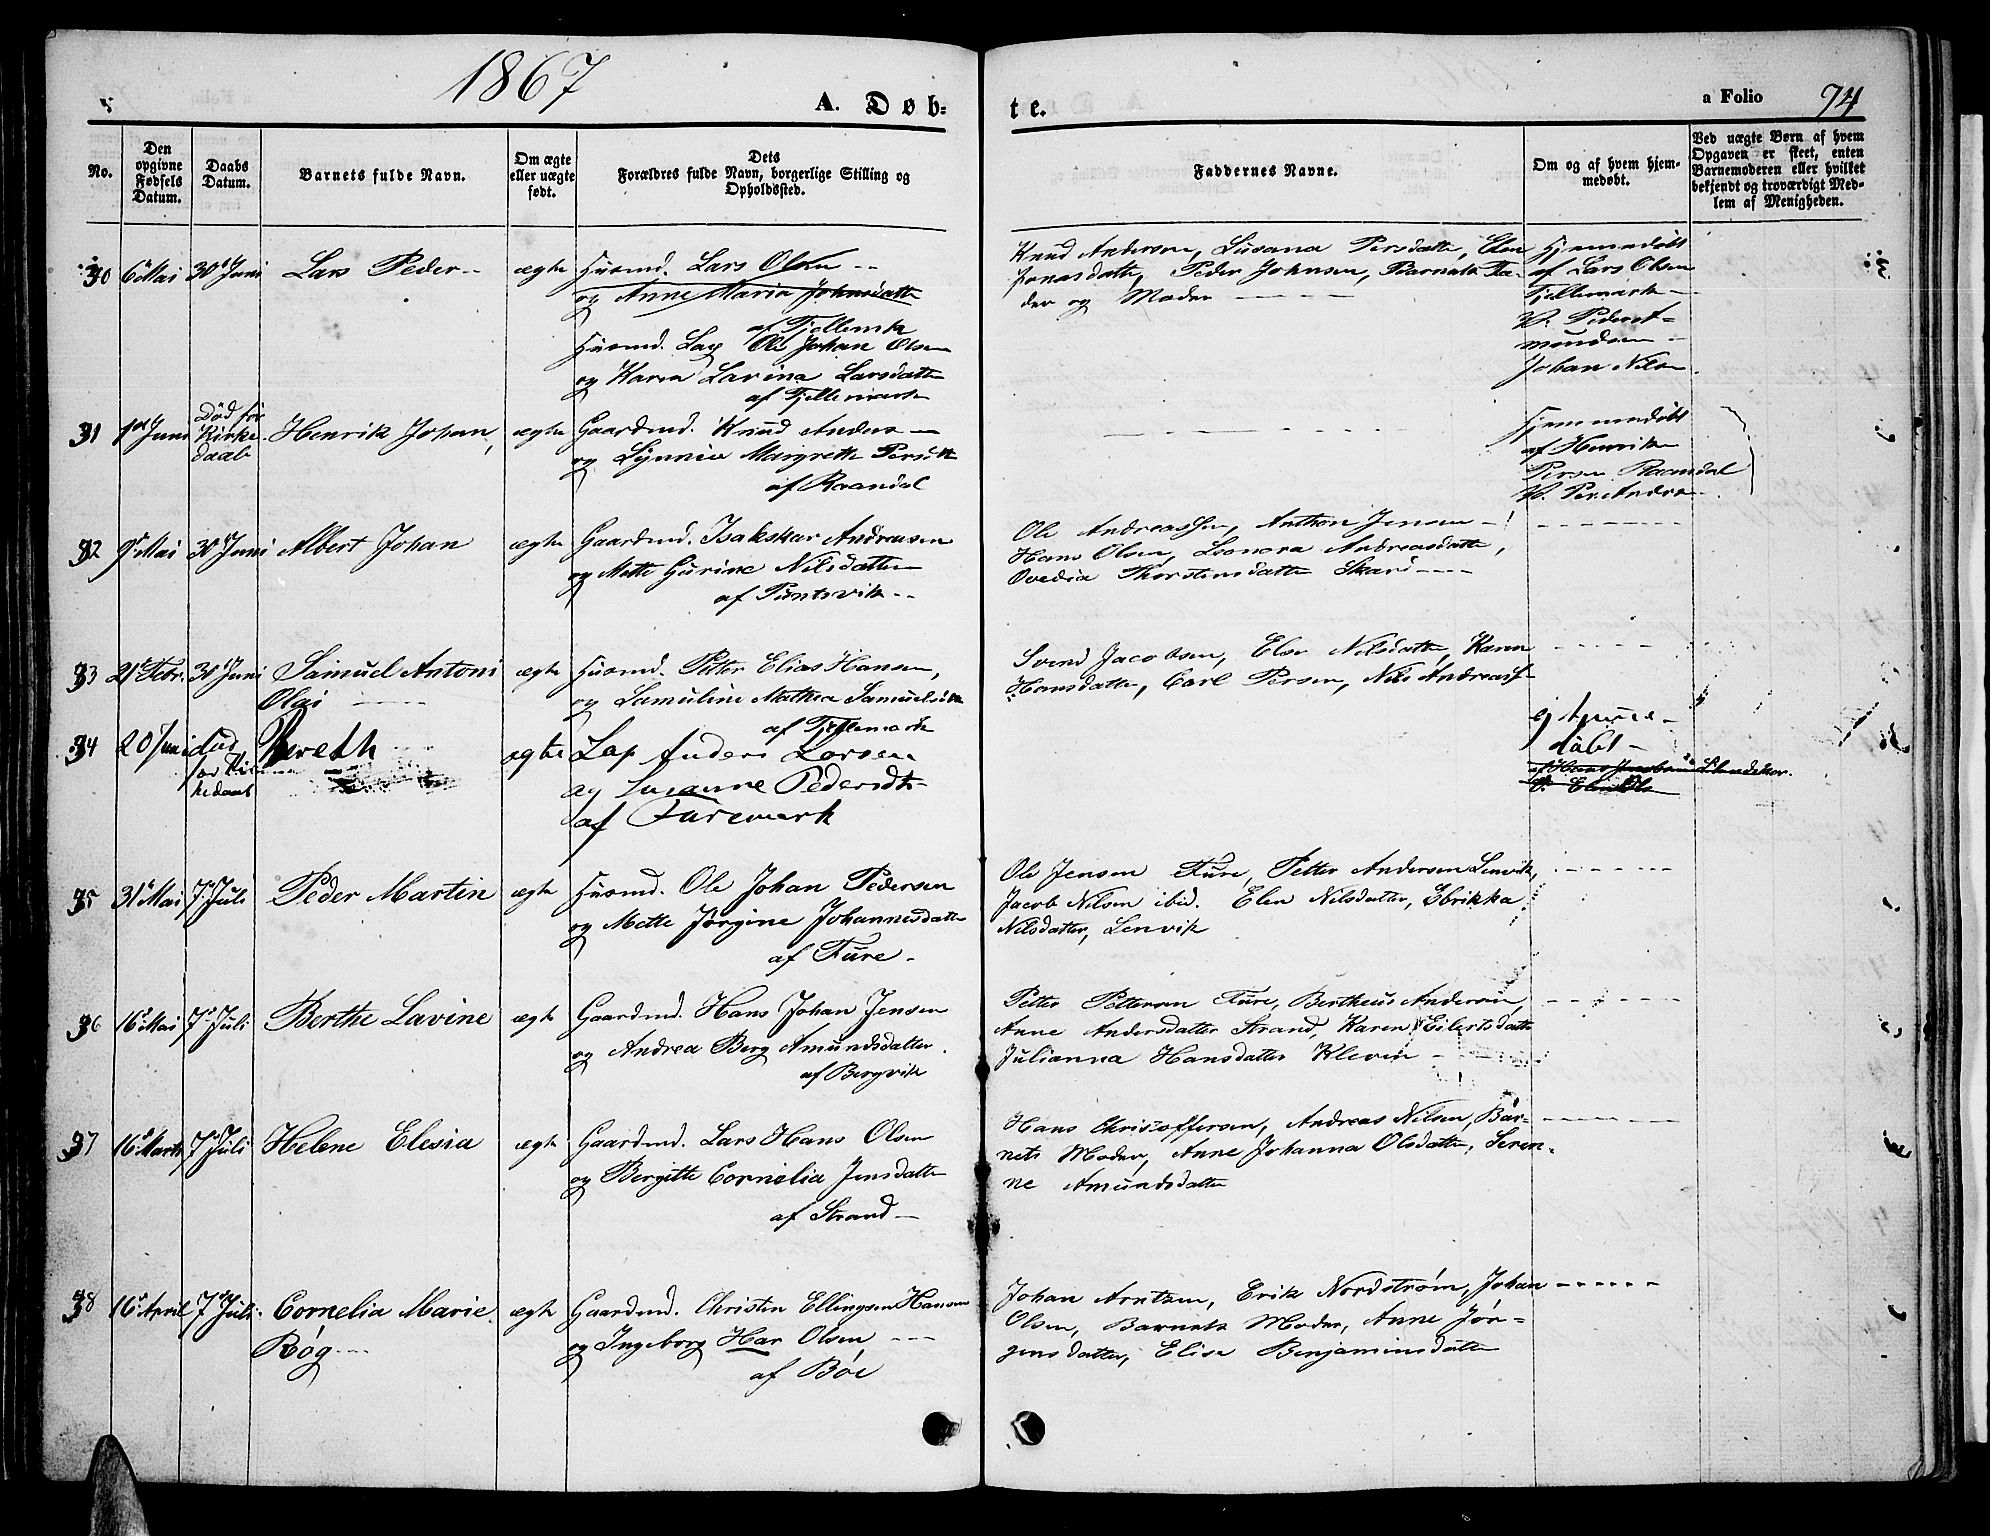 1867
A. Døb-
te.
a Folio 74
No.
Den opgivne Fødsels Datum.
Daabs Datum.
Barnets fulde Navn.
Om ægte eller uægte født.
Dets Forældres fulde Navn, borgerlige Stilling og Opholdssted.
Faddernes Navne.
Om og af hvem hjemmedøbt.
Ved uægte Børn af hvem Opgaven er skeet, enten Barnemoderen eller hvilket bekjendt og troværdigt Medlem af Menigheden.
30 6 Mai 30 Juni Lars Peder ægte Husmd. Lars Olsen
og Anne Maria Johnsdatter
af Fjellemark
Husmd. Lap Ole Johan Olsen
og Karen Lavina Larsdatter
af Fjellemark
Knud Andersen, Susana Persdatter, Elen
Jonasdatter, Peder Johnsen, Barnets Fa-
der og Moder
Hjemmedøbt
af Lars Olsen
Fjellemark
Johan Nilsen
31 1 Juni Død før
Kirke-
daab
Henrik Johan ægte Gaardmd. Knud Anders
og Margreth
af Raandal
Hjemmedøbt
af Henrik
Persen Raandal
32 9 Mai 30 Juni Albert Johan ægte Gaardmd. Isakskar Andreasen
og Mette Gurine Nilsdatter
af
Ole Andreassen, Anthon Jensen
Hans Olsen, Leonora Andreasdatter,
Ovedia Thorstensdatter Skar
33 21 Febr. 30 Juni Samuel Antoni
Olai
ægte Husmd. Peter Elias Hansen,
og Samuline Mathea
af Fjellemark
Svend Jacobsen, Else Nilsdatter, Karen
Hansdatter, Carl Persen, Nils
34 20 Juni død
ægte Lap Anders Larsen
og Susanne Pedersdt
af Furemark
døbt
af Hans Jacobsen
35 31 Mai 7 Juli Peder Martin ægte Husmd. Ole Johan Pedersen
og Mette Jørgine Johannesdatter
af Fure
Ole Jensen Fure, Petter Andersen Lenvik,
Jacob Nilsen ibid. Elen Nilsdatter, Ebrikka
Nilsdatter, Lenvik
36 16 Mai 7 Juli Berthe Lavine ægte Gaardmd. Hans Johan Jensen
og Andrea Berg Amundsdatter
af Bergvik
Petter Pettersen Fure, Bertheus Andersen,
Anne Andersdatter Strand, Karen Eilertsdatter
Julianna Hansdatter Kleven
37 16 Marts 7 Juli Helene Elesia ægte Gaardmd. Lars Hans Olsen
og Bergitte Cornelia Jensdatter
af Strand
Hans Christoffersen, Andreas Nilsen, Bar-
nets Moder, Anne Johanna Olsdatter, Seren-
ne Amundsdatter
38 16 April 7 Juli Cornelia Marie
Røg
ægte Gaardmd. Christen Ellingsen Hansen
og Ingeborg Har Olsen
af Bøe
Johan Arntzen, Erik Nordstrøm, Johan
Olsen, Barnets Moder, Anne Jør-
gensdatter, Elise Benjaminsdatter